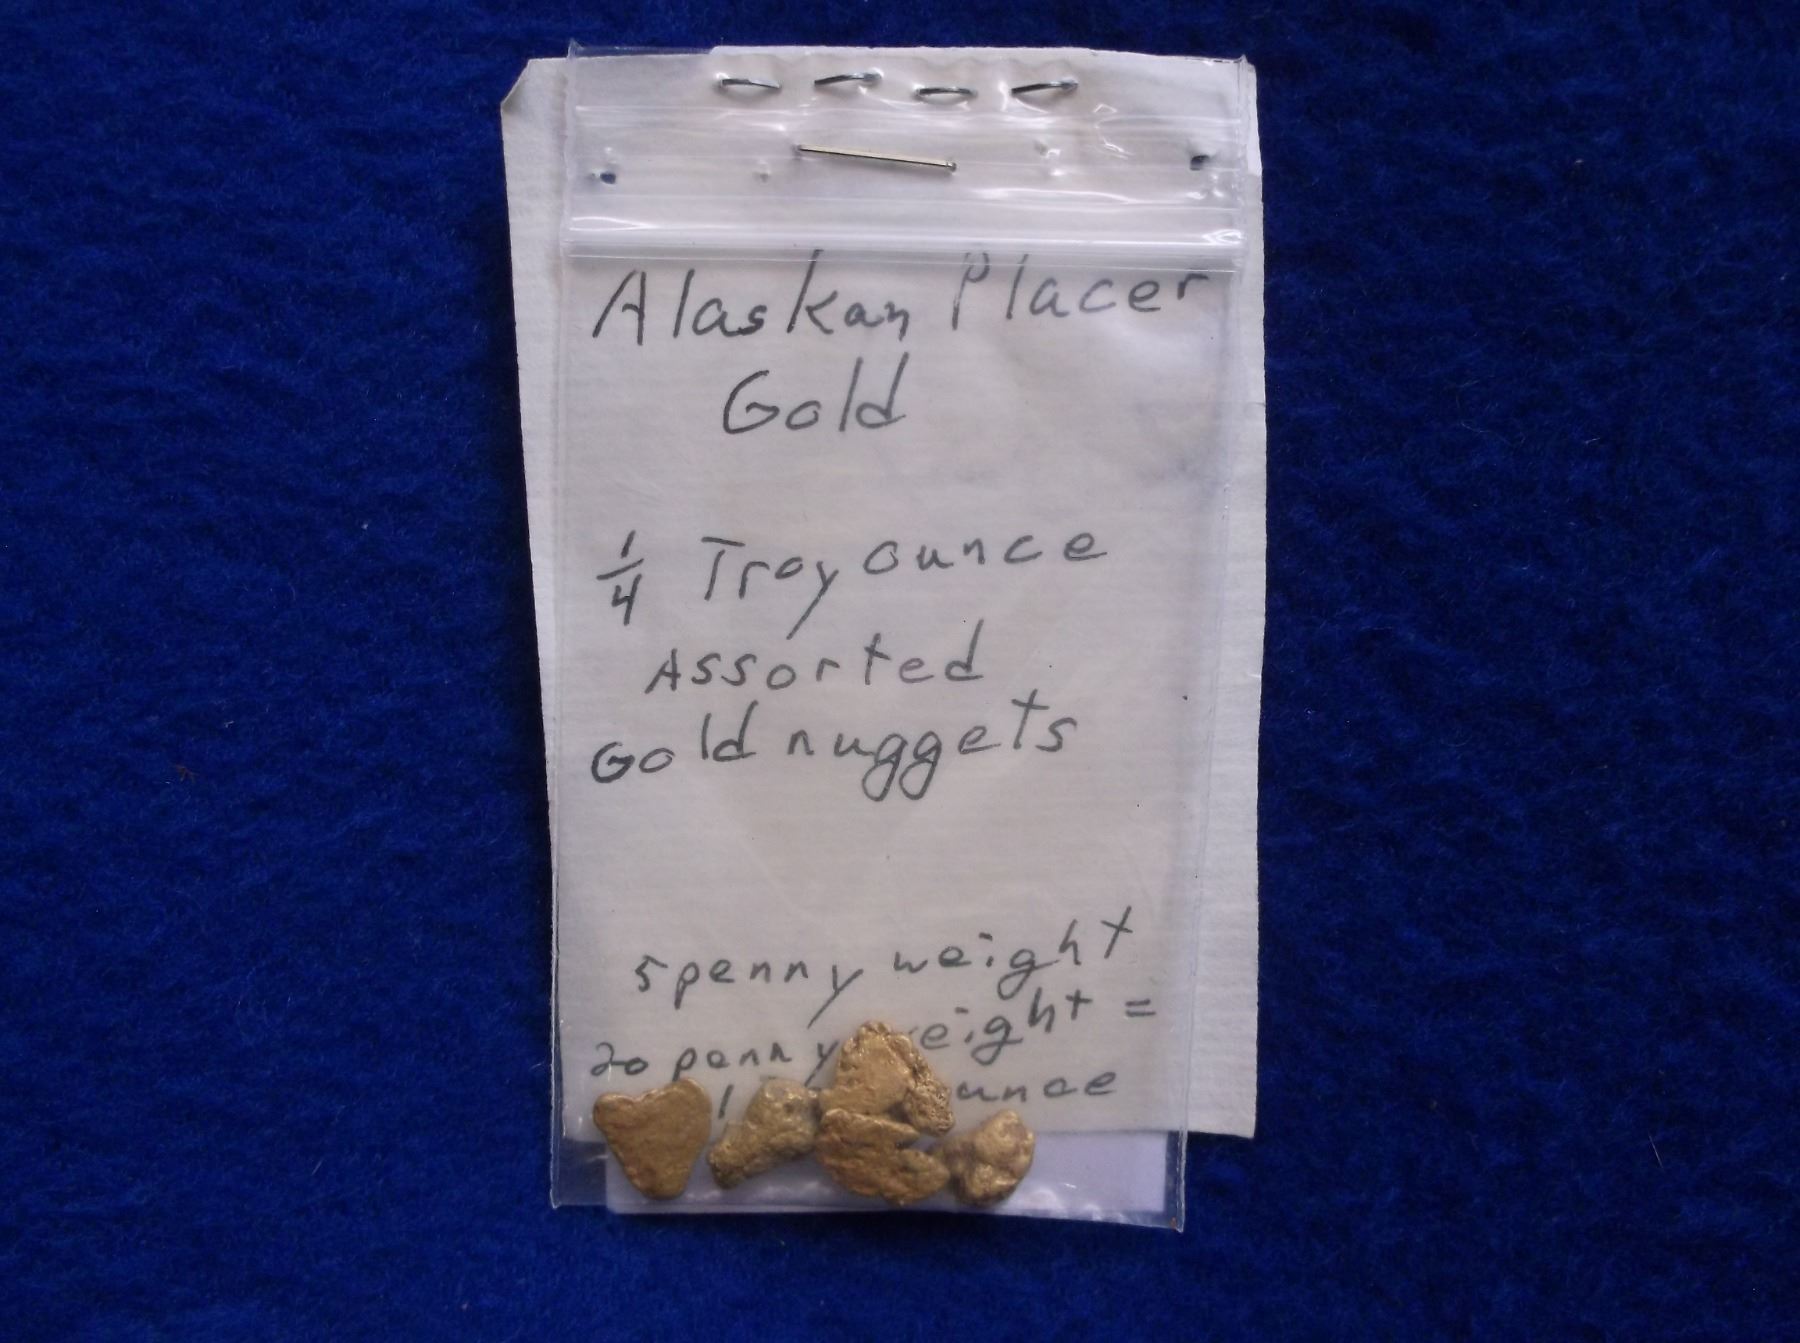 Alaskan Placer
Gold
1/4 Troy ounce
Assorted
Gold nuggets
5 penny weight
20 penny weight =
1 ounce